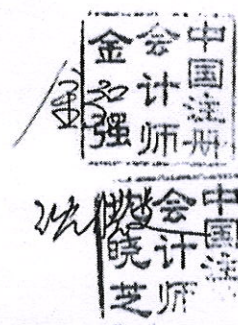 中国注册
会计师
金强
中国注
会计师
晓芝